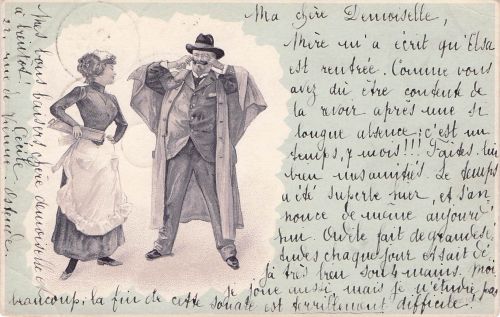 Ma chère Demoiselle,
Mère m'a écrit qu'Elsa
est rentrée. Comme vous
avez dû être contente de
la revoir après une si
longue absence; c'est un
temps, 7 mois!!! Faites-lui
bien mes amitiés. Le temps
a été superbe hier, et s'an-
nonce de même aujourd'
hui. On de fait de grandes
chaque jour. Elsa
déjà très bien 4 mains. Moi
je joue aussi, mais je n'étudie pas
beaucoup; la fin de cette sonate est terriblement difficile!
Mes bons baisers, chère demoiselle et
à bientôt! Cécile
22 rue de Vienne.